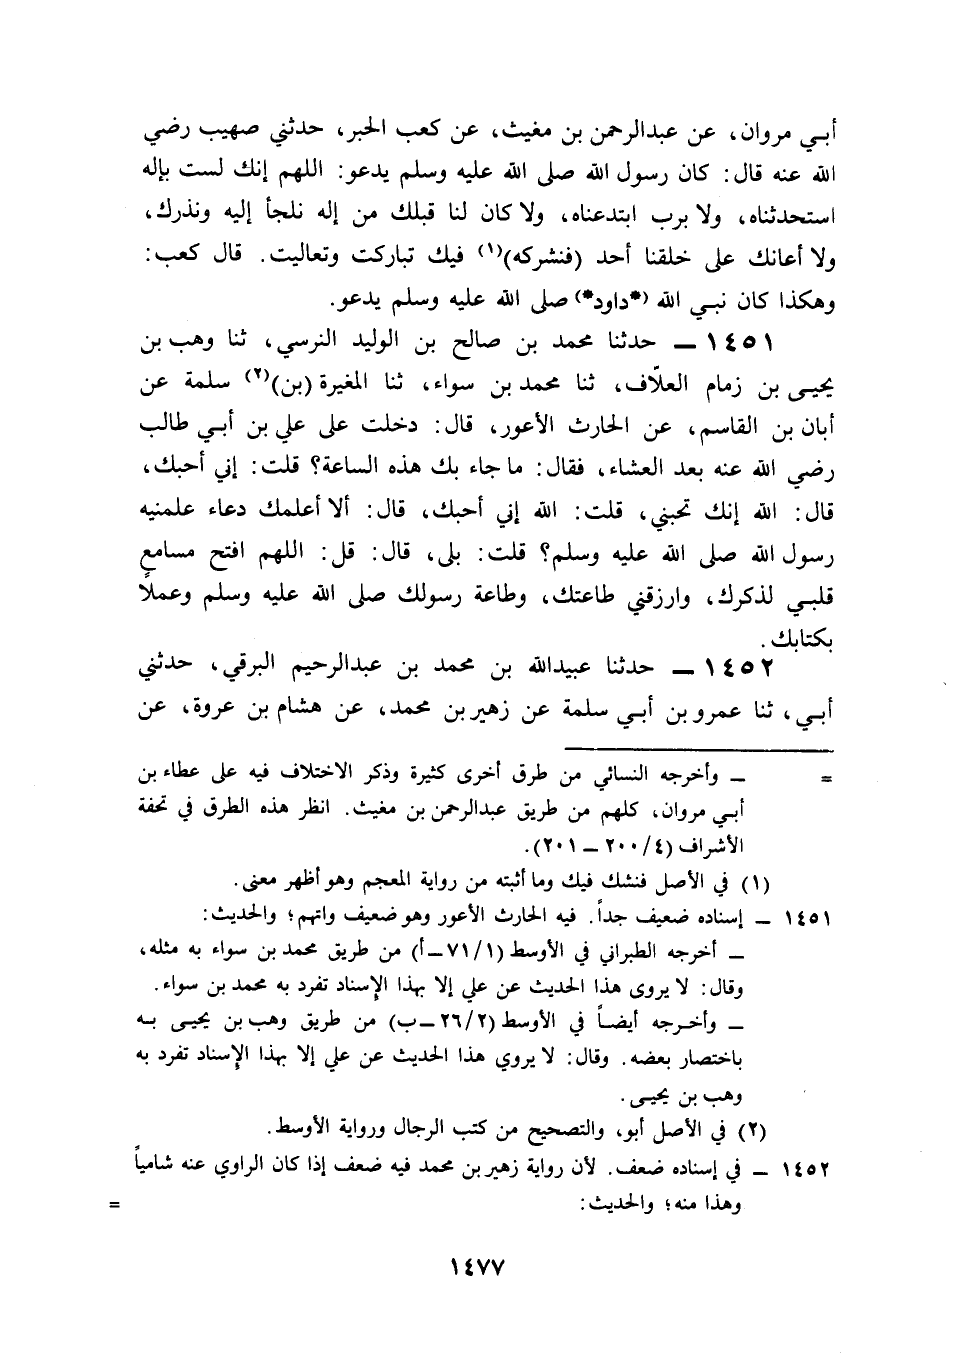 أبـي مروان، عن عبدالرحمن بن مغيث، عن كعب الحبر، حدثني صهيب رضي
الله عنه قال: كان رسول الله صلى الله عليه وسلم يدعو: اللهم إنك لست بإله
استحدثناه، ولا برب ابتدعناه، ولا كان لنا قبلك من إله نلجأ إليه ونذرك،
ولا أعانك على خلقنا أحد (فنشركه)(١) فيك تباركت وتعاليت. قال كعب:
وهكذا كان نبـي الله (*داود*) صلى الله عليه وسلم يدعو.
١٤٥١ ـ حدثنا محمد بن صالح بن الوليد النرسي، ثنا وهب بن
يحيـى بن زمام العلّاف، ثنا محمد بن سواء، ثنا المغيرة (بن)(٢) سلمة عن
أبان بن القاسم، عن الحارث الأعور، قال: دخلت على علي بن أبـي طالب
رضي الله عنه بعد العشاء، فقال: ما جاء بك هذه الساعة؟ قلت: إني أحبك،
قال: الله إنك تحبني، قلت: الله إني أحبك، قال: ألا أعلمك دعاء علمنيه
رسول الله صلى الله عليه وسلم؟ قلت: بلى، قال: قل: اللهم افتح مسامع
قلبـي لذكرك، وارزقني طاعتك، وطاعة رسولك صلى الله عليه وسلم وعملاً
بكتابك.
١٤٥٢ ـ حدثنا عبيدالله بن محمد بن عبدالرحيم البرقي، حدثني
أبـي، ثنا عمرو بن أبـي سلمة عن زهير بن محمد، عن هشام بن عروة، عن
= ـ وأخرجه النسائي من طرق أخرى كثيرة وذكر الاختلاف فيه على عطاء بن
أبـي مروان، كلهم من طريق عبدالرحمن بن مغيث. انظر هذه الطرق في تحفة
الأشراف (٤/٢٠٠ ـ ٢٠١).
(١) في الأصل فنشك فيك وما أثبته من رواية المعجم وهو أظهر معنى.
١٤٥١ ـ إسناده ضعيف جداً. فيه الحارث الأعور وهو ضعيف واتهم؛ والحديث:
ـ أخرجه الطبراني في الأوسط (١/٧١ـأ) من طريق محمد بن سواء به مثله،
وقال: لا يروى هذا الحديث عن علي إلا بهذا الإسناد تفرد به محمد بن سواء.
ـ وأخـرجه أيضـاً في الأوسط (٢/٢٦ـب) من طريق وهب بن يحيـى بـه
باختصار بعضه. وقال: لا يروي هذا الحديث عن علي إلا بهذا الإسناد تفرد به
وهب بن يحيـى.
(٢) في الأصل أبو، والتصحيح من كتب الرجال ورواية الأوسط.
١٤٥٢ ـ في إسناده ضعف. لأن رواية زهير بن محمد فيه ضعف إذا كان الراوي عنه شامياً
وهذا منه؛ والحديث: =
١٤٧٧